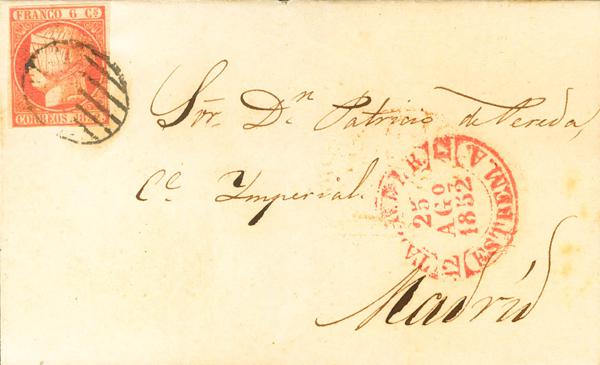 FRANCO 6 Cs
CORREOS 1852
Sor. Dn. Patricio de Pereda,
Ce. Imperial.
25
AGo
1852
12
ESTREMA
Madrid